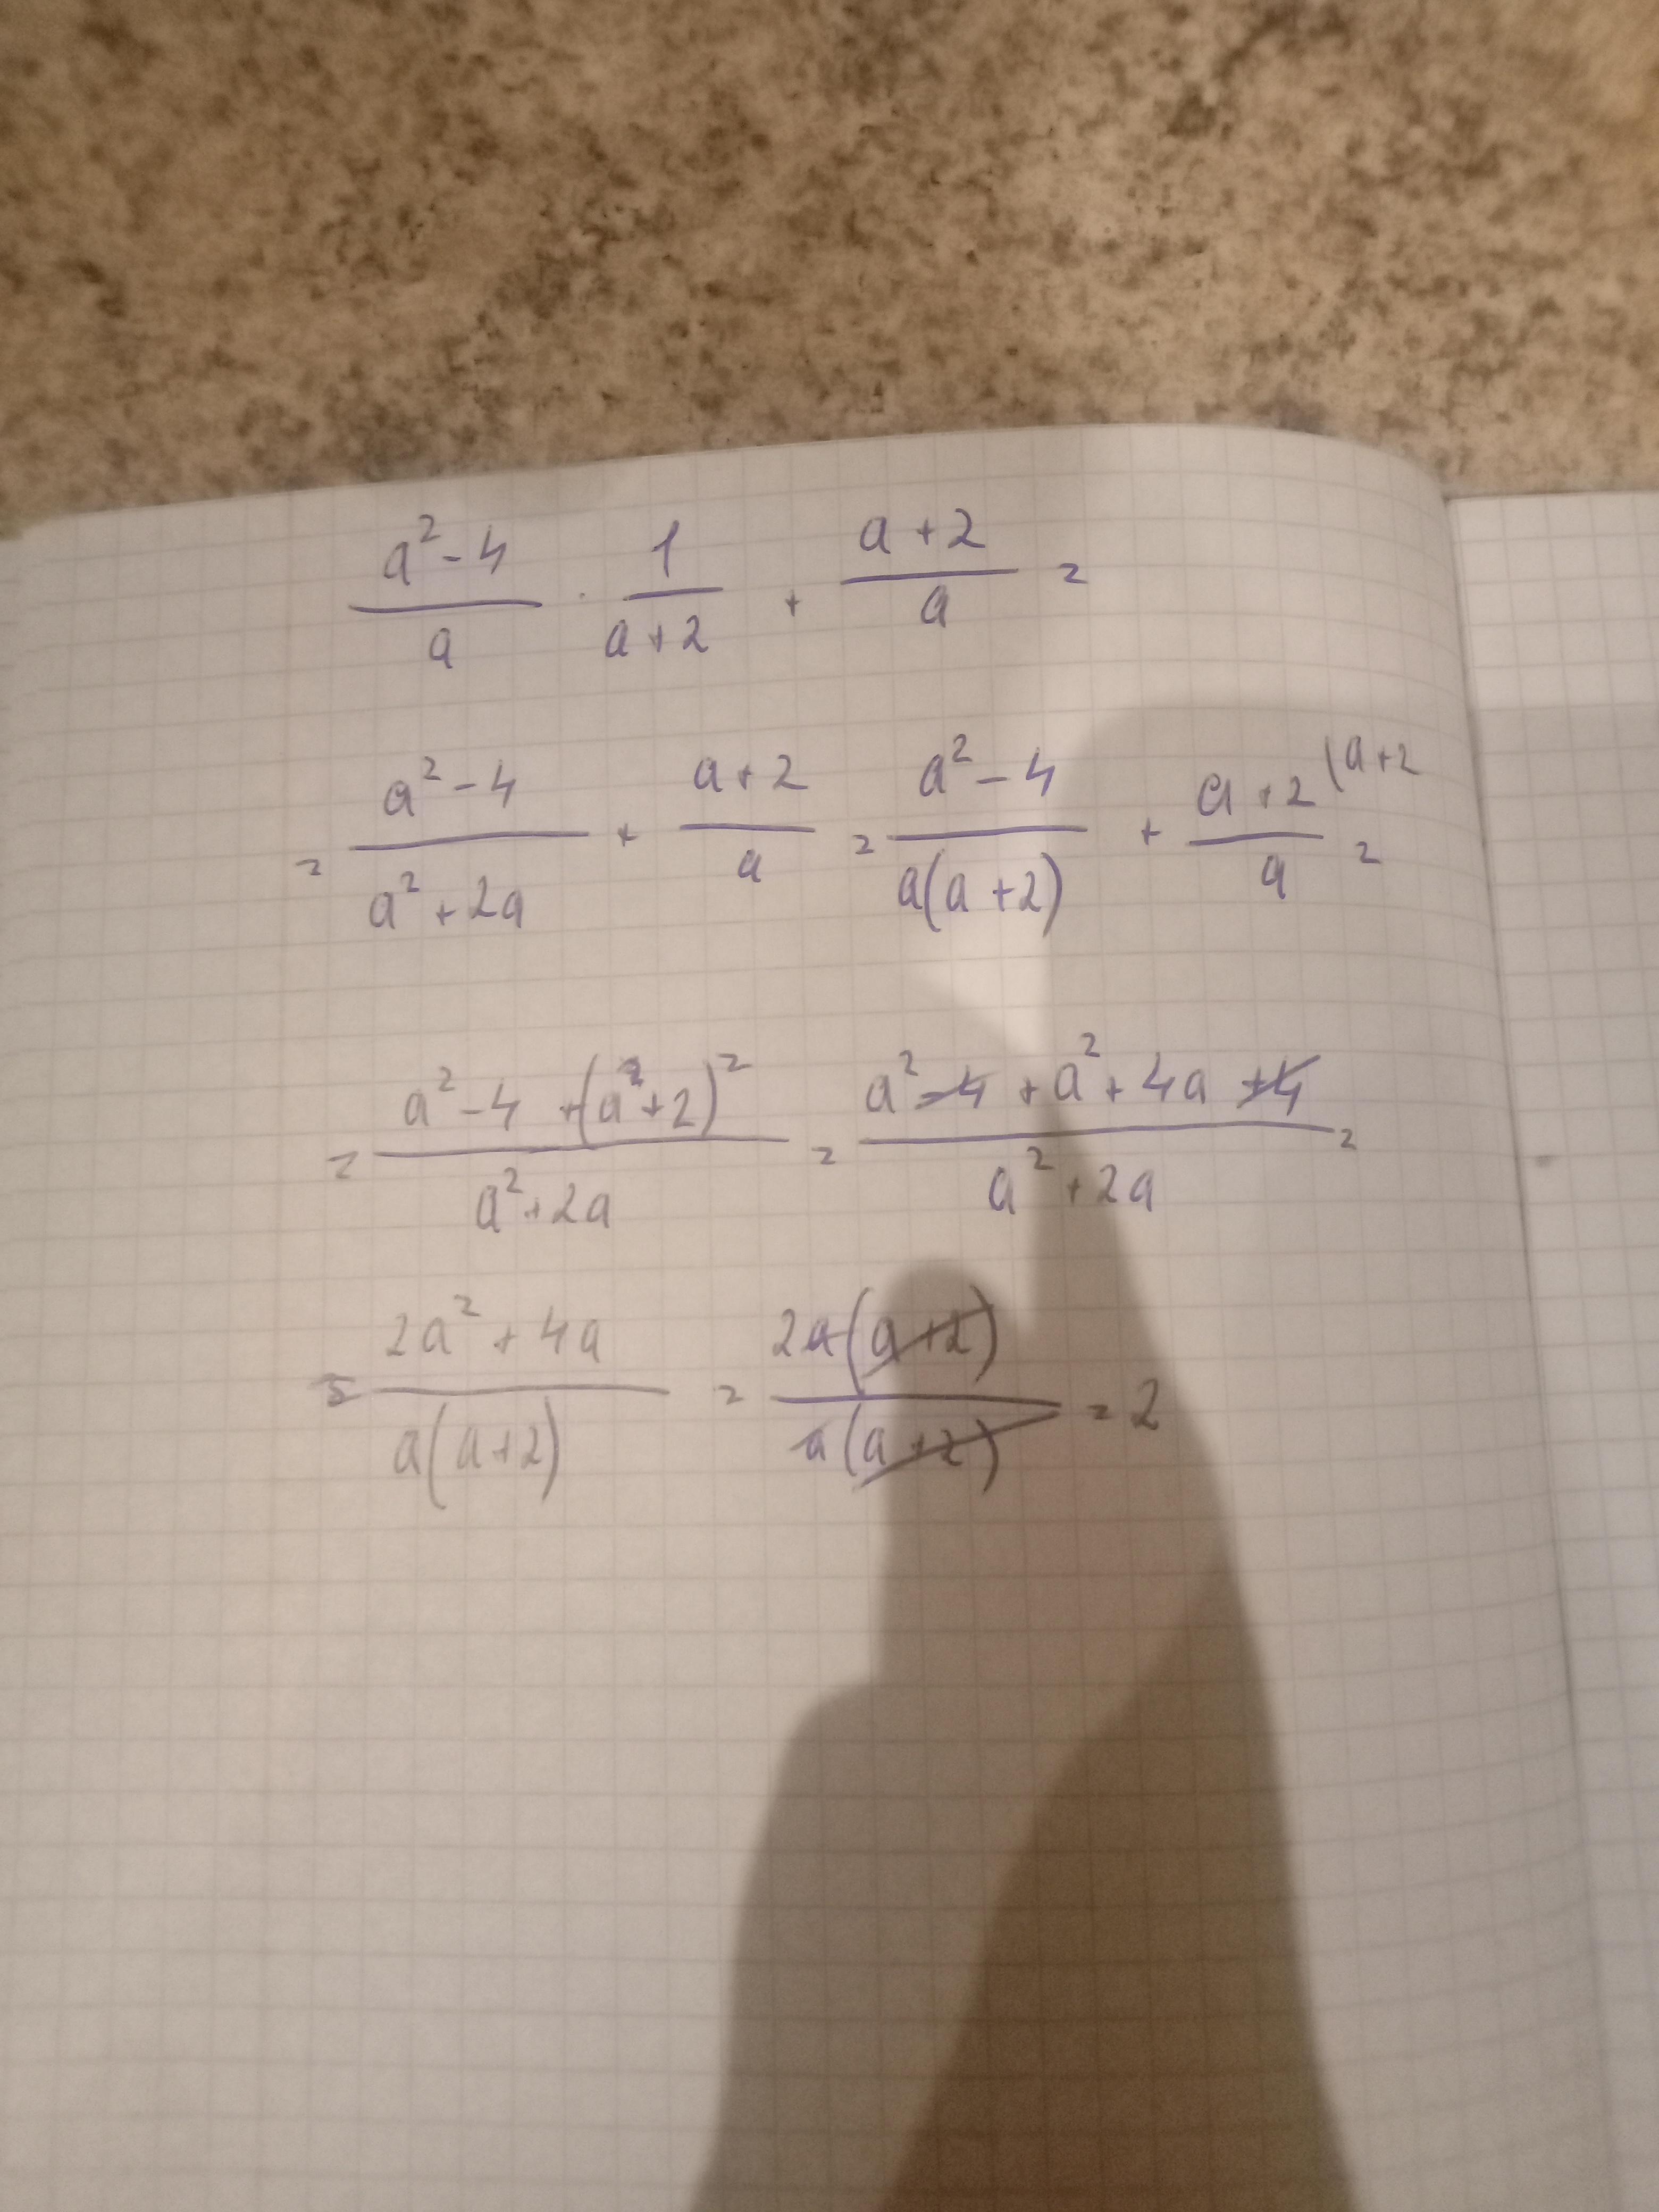 (a² - 4)/a · 1/(a + 2) + (a + 2)/a =
= (a² - 4)/(a² + 2a) + (a + 2)/a = (a² - 4)/(a(a + 2)) + (a + 2)/a \a + 2 =
= (a² - 4 + (a² + 2)²)/(a² + 2a) = (a² - 4 + a² + 4a + 4)/(a² + 2a) =
= (2a² + 4a)/(a(a + 2)) = (2a(a + 2))/(a(a + 2)) = 2